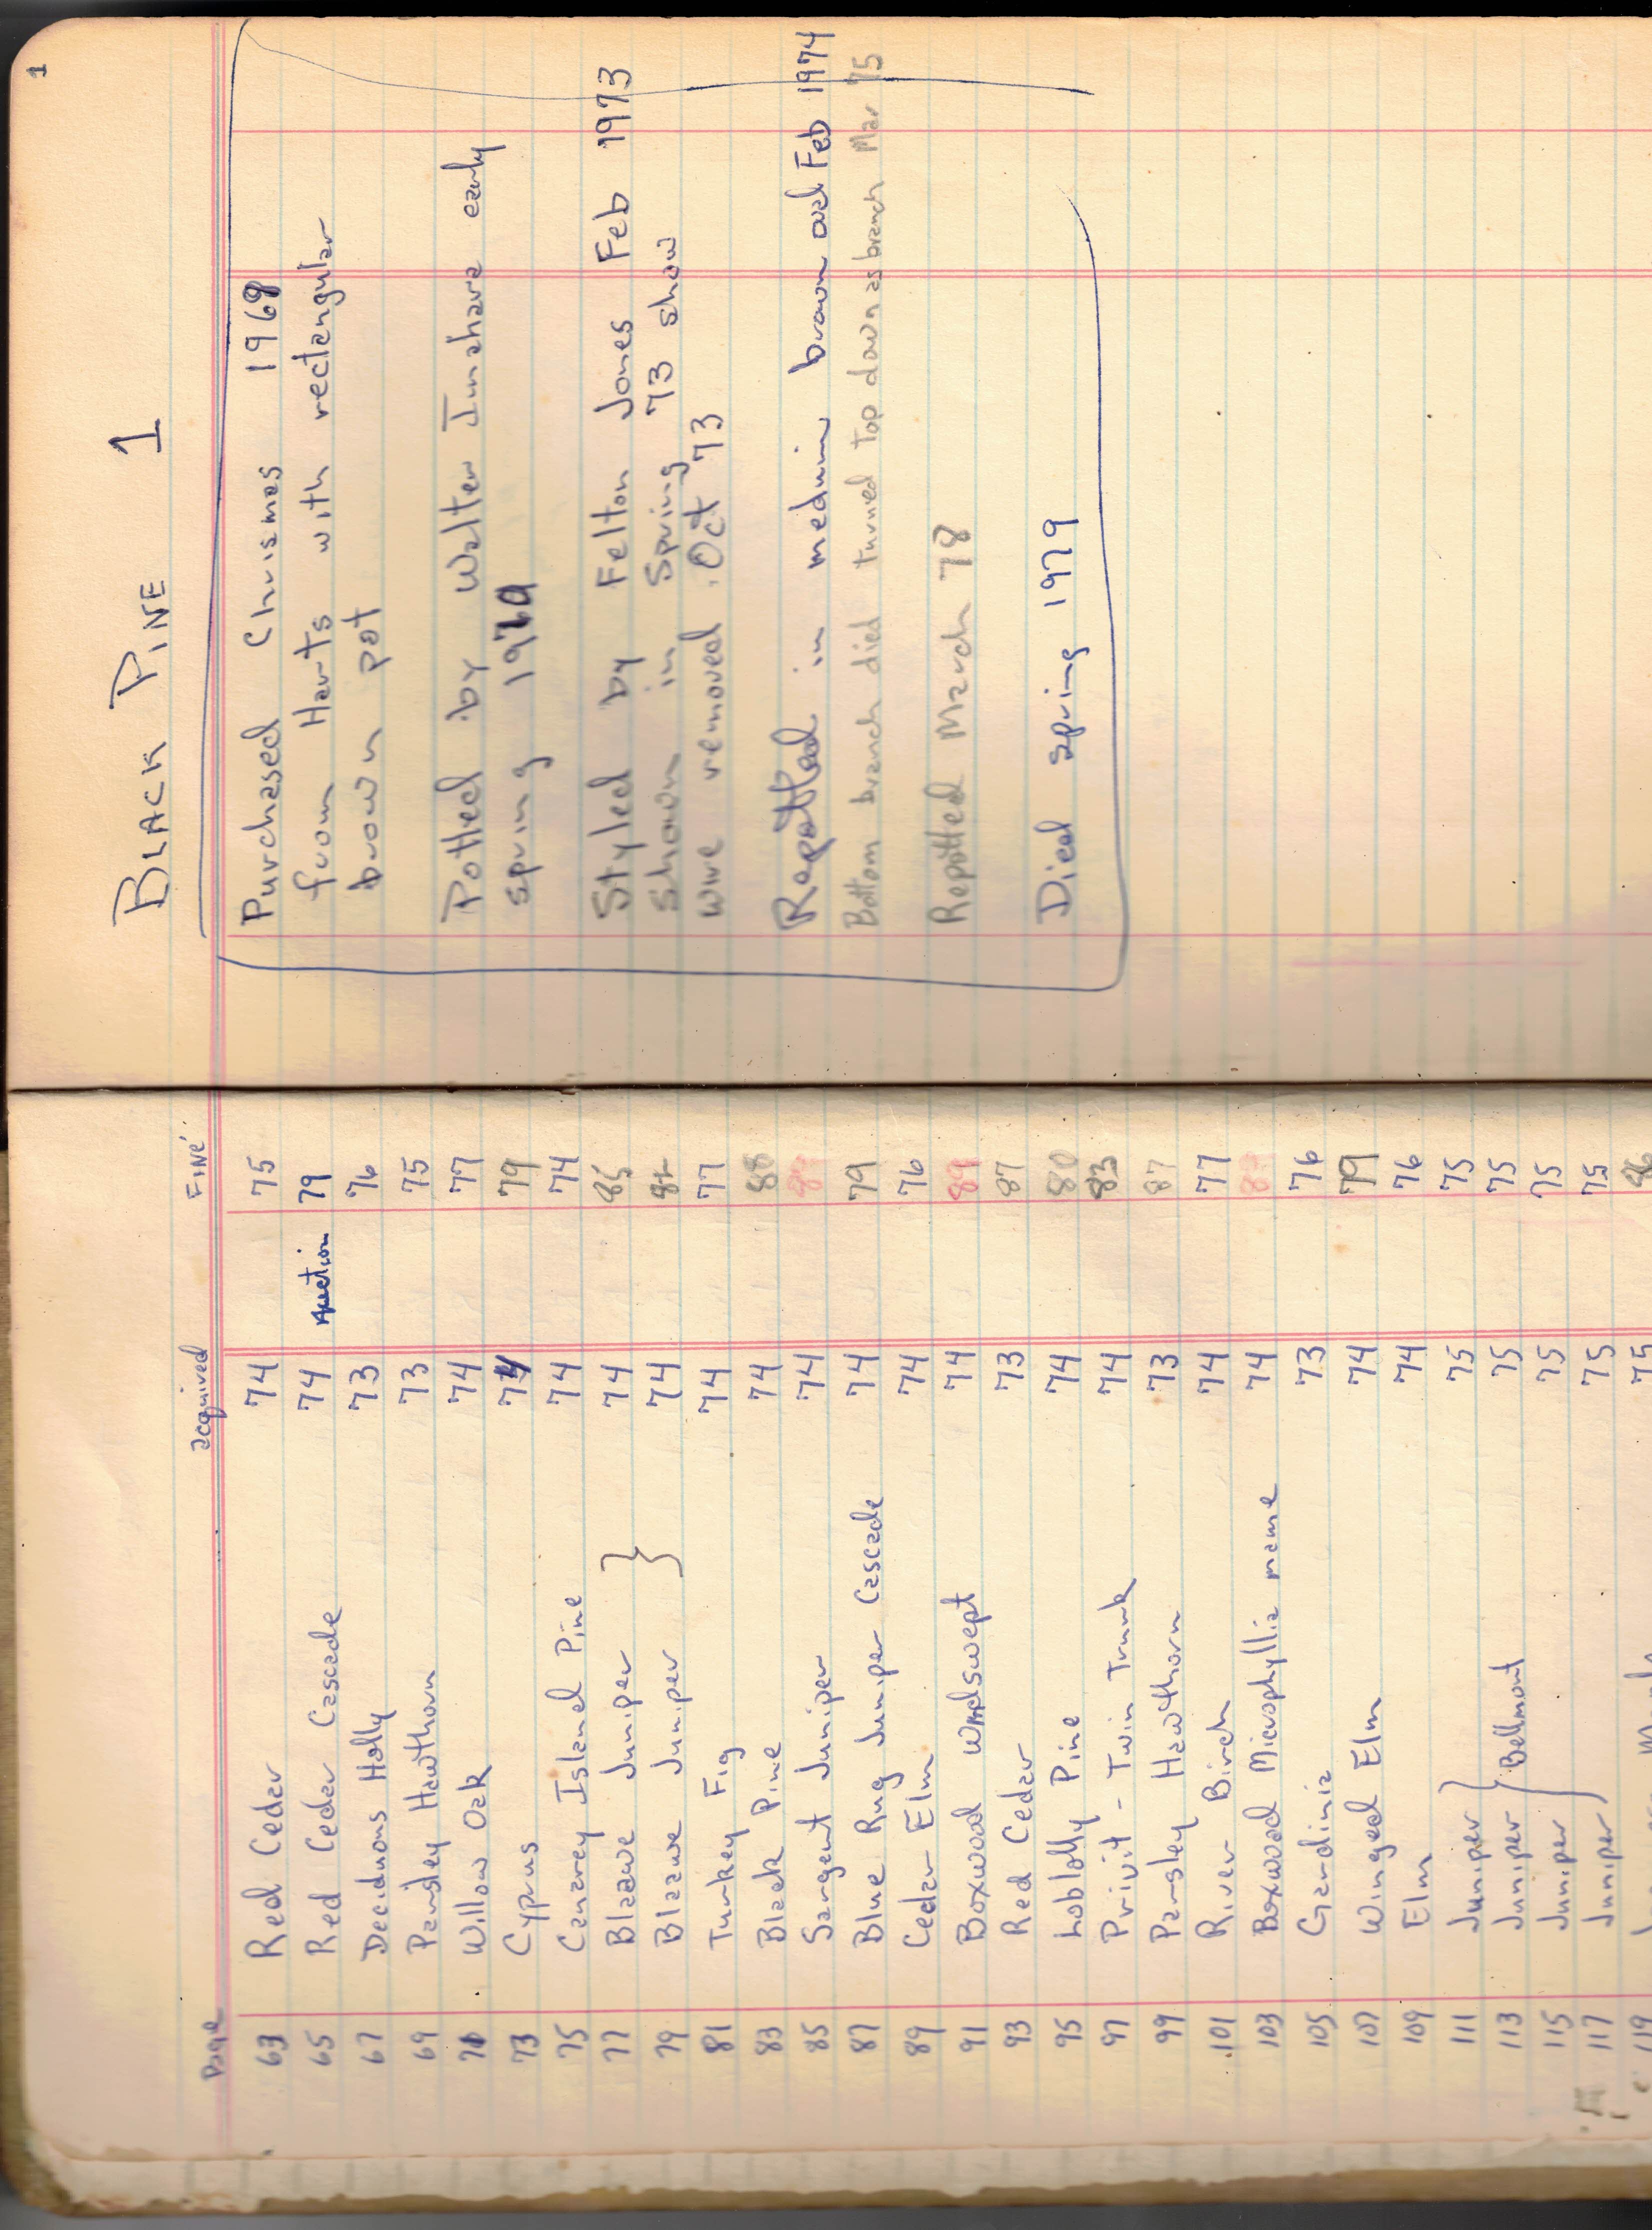 Page acquired FINE'
63 Red Cedar 74 75
65 Red Cedar Cascade 74 Auction 79
67 Deciduous Holly 73 76
69 Parsley Hawthorn 73 75
71 Willow Oak 74 77
73 Cyprus 74 79
75 Canarey Island Pine 74 74
77 Blaawe Juniper 74 85
79 Blaawe Juniper 74
81 Turkey Fig 74 77
83 Black Pine 74 88
85 Sargent Juniper 74
87 Blue Rug Juniper Cascade 74 79
89 Cedar Elm 74 76
91 Boxwood Windswept 74 89
93 Red Cedar 73 87
95 Loblolly Pine 74 80
97 Privit - Twin Trunk 74 83
99 Parsley Hawthorn 73 87
101 River Birch 74 77
103 Boxwood Microphyllia mame 74
105 Gardinia 73 76
107 Winged Elm 74 79
109 Elm 74 76
111 Juniper 75 75
113 Juniper Bellmont 75 75
115 Juniper 75 75
117 Juniper 75 75
119 75 86
1
BLACK PINE 1
Purchased Chrismas 1969
from Harts with rectangular
brown pot
Potted by Walter Imahara early
spring 1970
Styled by Felton Jones Feb 1973
shown in Spring 73 show
wire removed Oct 73
Repotted in medium brown oval Feb 1974
Bottom branch died turned top down as branch Mar 75
Repotted March 78
Died spring 1979